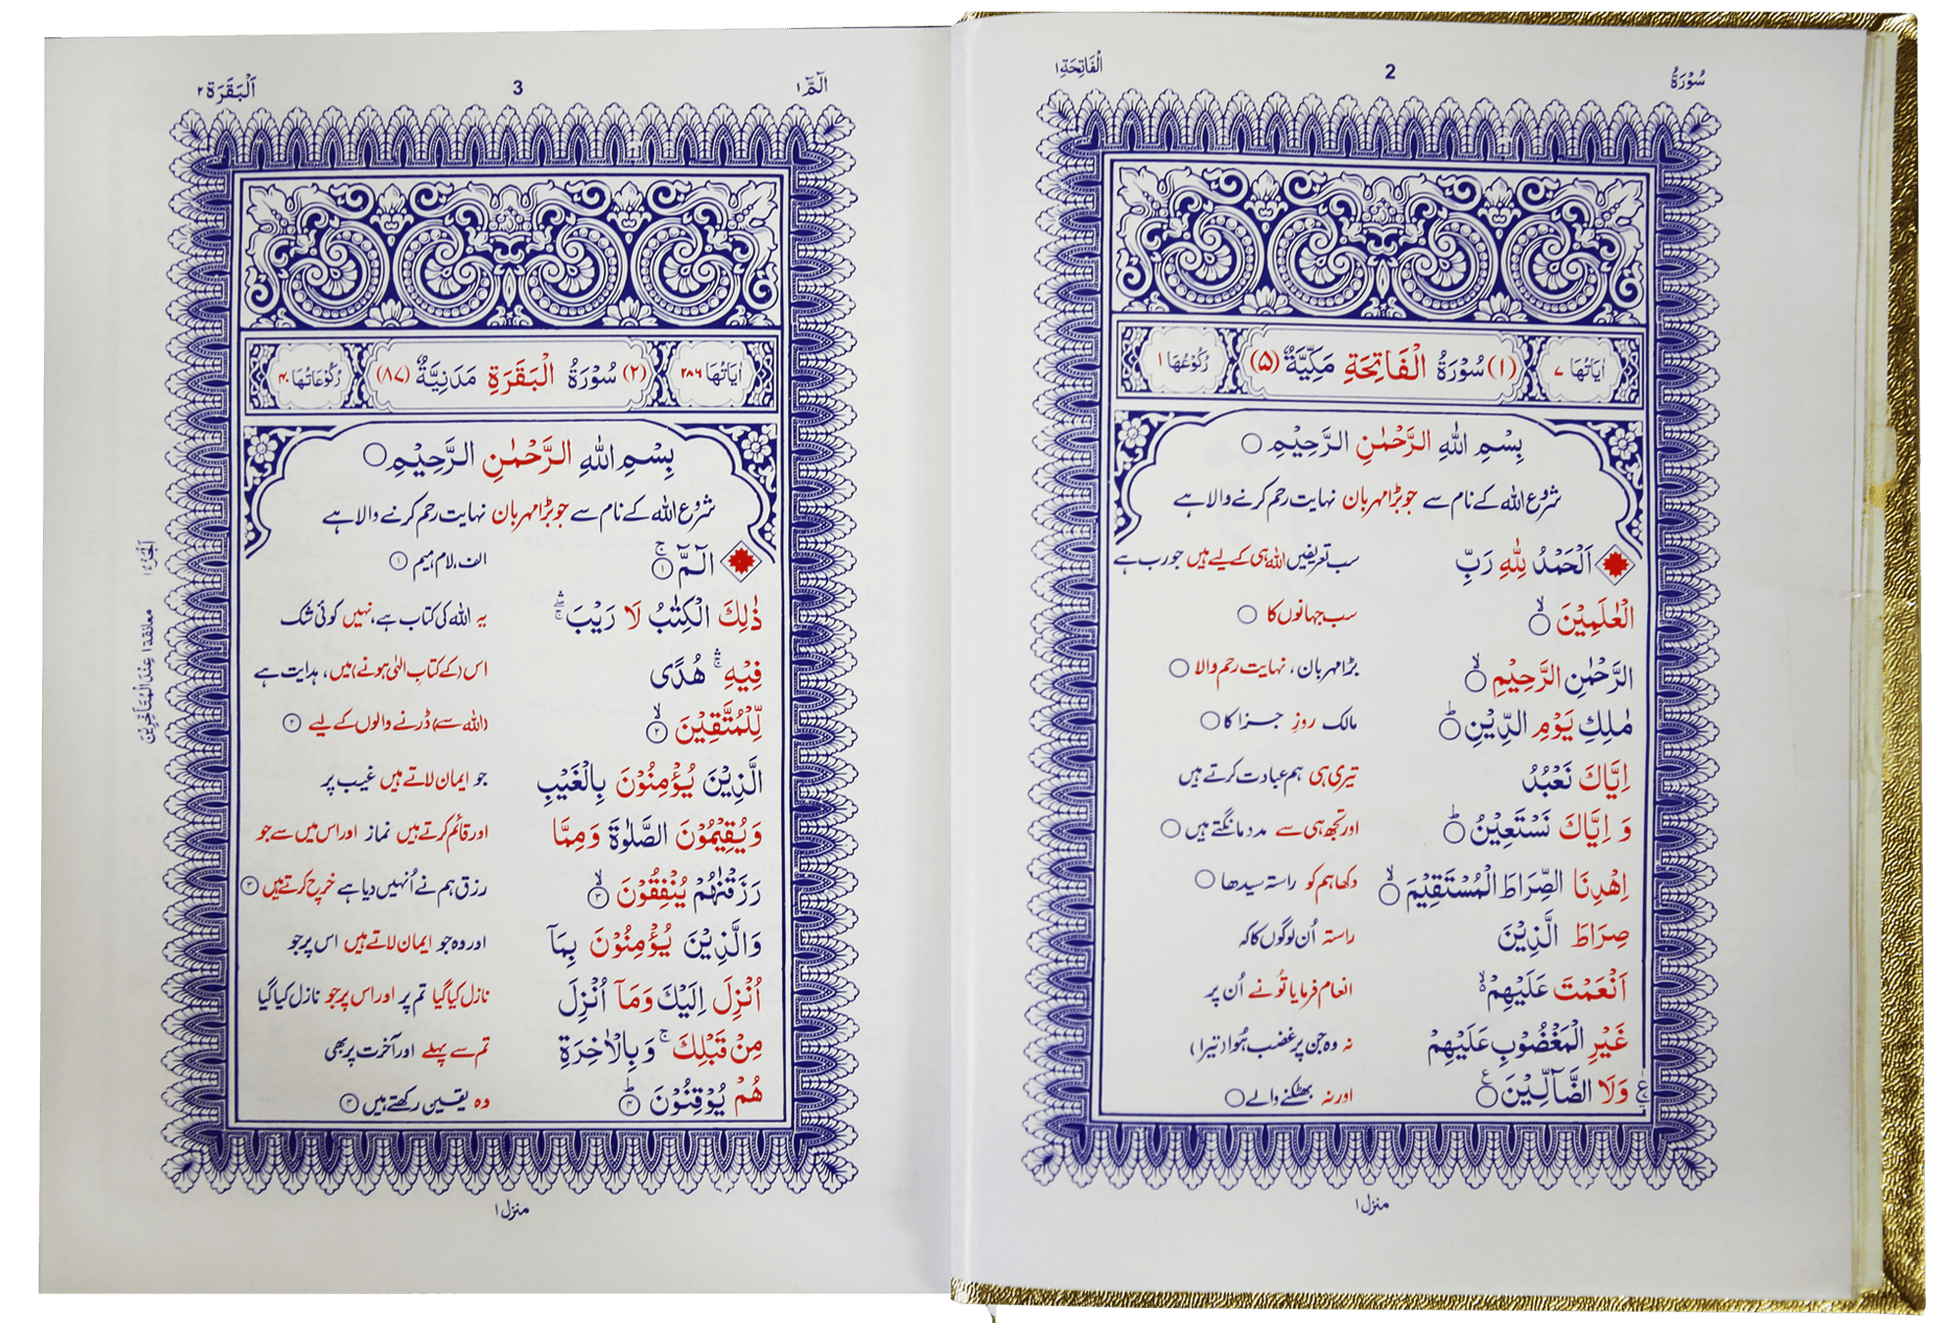 سُوۡرَةُ 2 اَلۡفَاتِحَةِ ۱
اٰیَاتُهَا ۷ (۱) سُوۡرَةُ الۡفَاتِحَةِ مَكِّیَّةٌ (۵) رُكُوۡعُهَا ۱
بِسۡمِ اللّٰهِ الرَّحۡمٰنِ الرَّحِیۡمِ ○
شروع اللہ کے نام سے جو بڑا مہربان نہایت رحم کرنے والا ہے
اَلۡحَمۡدُ لِلّٰهِ رَبِّ سب تعریفیں اللہ ہی کے لیے ہیں جو رب ہے
الۡعٰلَمِیۡنَ ○ۙ سب جہانوں کا ○
الرَّحۡمٰنِ الرَّحِیۡمِ ○ۙ بڑا مہربان، نہایت رحم والا ○
مٰلِكِ یَوۡمِ الدِّیۡنِ ○ؕ مالک روزِ جزا کا ○
اِیَّاكَ نَعۡبُدُ تیری ہی ہم عبادت کرتے ہیں
وَ اِیَّاكَ نَسۡتَعِیۡنُ ○ؕ اور تجھ ہی سے مدد مانگتے ہیں ○
اِهۡدِنَا الصِّرَاطَ الۡمُسۡتَقِیۡمَ ○ۙ دکھا ہم کو راستہ سیدھا ○
صِرَاطَ الَّذِیۡنَ راستہ اُن لوگوں کا کہ
اَنۡعَمۡتَ عَلَیۡهِمۡ ۙ۬ انعام فرمایا تُو نے اُن پر
غَیۡرِ الۡمَغۡضُوۡبِ عَلَیۡهِمۡ نہ وہ جن پر غضب ہُوا (تیرا)
وَلَا الضَّآلِّیۡنَ ○ع اور نہ بھٹکنے والے ○
ع
منزل ۱
الٓمّٓ ۱ 3 اَلۡبَقَرَة ۲
اٰیَاتُهَا ۲۸۶ (۲) سُوۡرَةُ الۡبَقَرَةِ مَدَنِیَّةٌ (۸۷) رُكُوۡعَاتُهَا ۴۰
بِسۡمِ اللّٰهِ الرَّحۡمٰنِ الرَّحِیۡمِ ○
شروع اللہ کے نام سے جو بڑا مہربان نہایت رحم کرنے والا ہے
الٓمّٓ ۱ۚ الف، لام، میم ۱
ذٰلِكَ الۡكِتٰبُ لَا رَیۡبَ ۛۖۚ یہ اللہ کی کتاب ہے، نہیں کوئی شک
فِیۡهِ ۛۚ هُدًی اس (کے کتابِ الٰہی ہونے) میں، ہدایت ہے
لِّلۡمُتَّقِیۡنَ ۲ۙ (اللہ سے) ڈرنے والوں کے لیے ۲
الَّذِیۡنَ یُؤۡمِنُوۡنَ بِالۡغَیۡبِ جو ایمان لاتے ہیں غیب پر
وَیُقِیۡمُوۡنَ الصَّلٰوةَ وَمِمَّا اور قائم کرتے ہیں نماز اور اس میں سے جو
رَزَقۡنٰهُمۡ یُنۡفِقُوۡنَ ۳ۙ رزق ہم نے اُنہیں دیا ہے خرچ کرتے ہیں ۳
وَالَّذِیۡنَ یُؤۡمِنُوۡنَ بِمَاۤ اور وہ جو ایمان لاتے ہیں اس پر جو
اُنۡزِلَ اِلَیۡكَ وَمَاۤ اُنۡزِلَ نازل کیا گیا تم پر اور اس پر جو نازل کیا گیا
مِنۡ قَبۡلِكَ ۚ وَبِالۡاٰخِرَةِ تم سے پہلے اور آخرت پر بھی
هُمۡ یُوۡقِنُوۡنَ ۴ؕ وہ یقین رکھتے ہیں ۴
اَلۡجُزۡءُ ۱ معانقة ۱ عِنۡدَ الۡمُتَاَخِّرِیۡنَ
منزل ۱